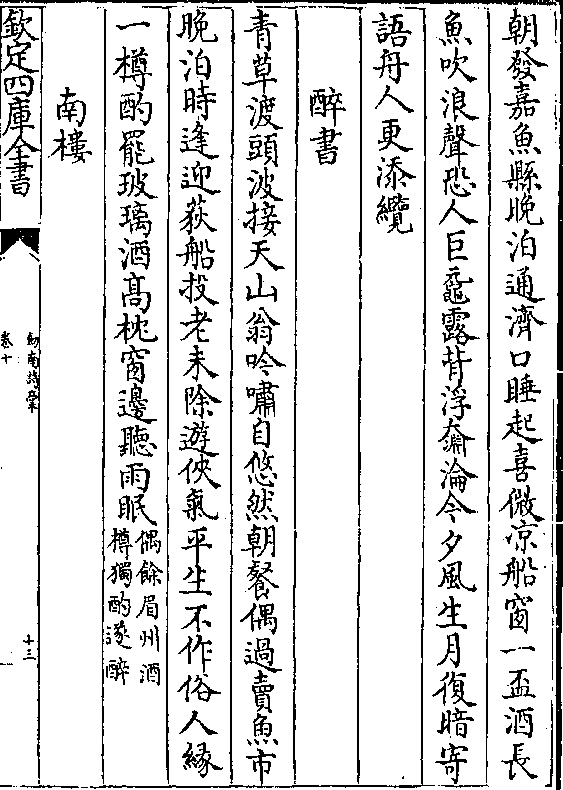 朝發嘉魚縣晚泊通濟口睡起喜微凉船窗一盃酒長
魚吹浪聲恐人巨黿露背浮奫淪今夕風生月復暗寄
語舟人更添纜
醉書
青草渡頭波接天山翁吟嘯自悠然朝餐偶過賣魚市
晚泊時逢迎荻船投老未除遊俠氣平生不作俗人緣
一樽酌罷玻璃酒高枕窗邊聽雨眠偶餘眉州酒
樽獨酌遂醉
南樓
欽定四庫全書
劍南詩稾
卷十
十三